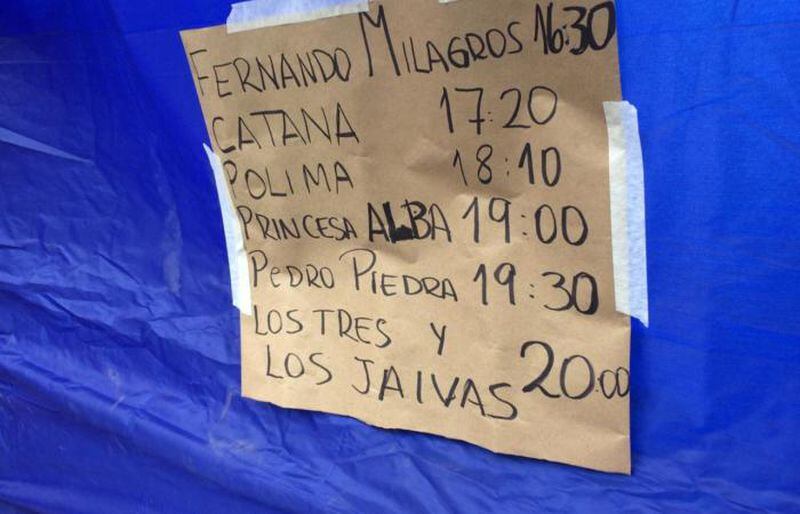 FERNANDO MILAGROS 16:30
CATANA 17:20
POLIMA 18:10
PRINCESA ALBA 19:00
PEDRO PIEDRA 19:30
LOS TRES Y
LOS JAIVAS 20:00